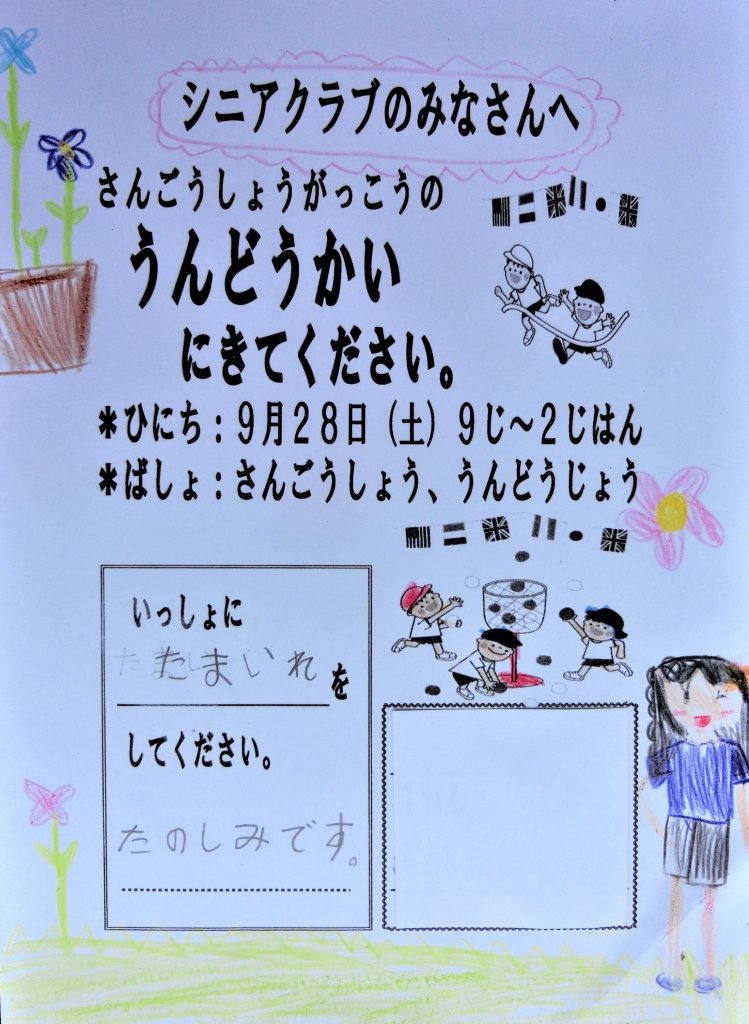 シニアクラブのみなさんへ
さんごうしょうがっこうの
うんどうかい
にきてください。
＊ひにち：９月２８日（土）９じ～２じはん
＊ばしょ：さんごうしょう、うんどうじょう
いっしょに
たまいれを
してください。
たのしみです。